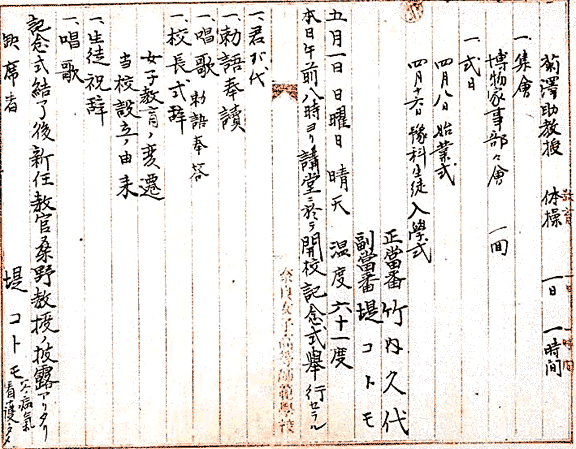 菊澤助教授 体操 一日 一時間
一、集會
博物家事部々會 一回
一、式日
四月八日 始業式
四月十六日 豫科生徒入學式
正當番 竹内久代
副當番 堤コトモ
五月一日 日曜日 晴天 温度六十一度
本日午前八時ヨリ講堂ニ於テ開校記念式擧行セラル
奈良女子高等師範學校
一、君が代
一、勅語奉讀
一、唱歌 勅語奉答
一、校長式辞
女子教育ノ変遷
当校設立ノ由来
一、生徒祝辞
一、唱歌
記念式結了後新任教官桑野教授ノ披露アリタリ
欠席者 堤コトモ 父病氣看護ノタメ